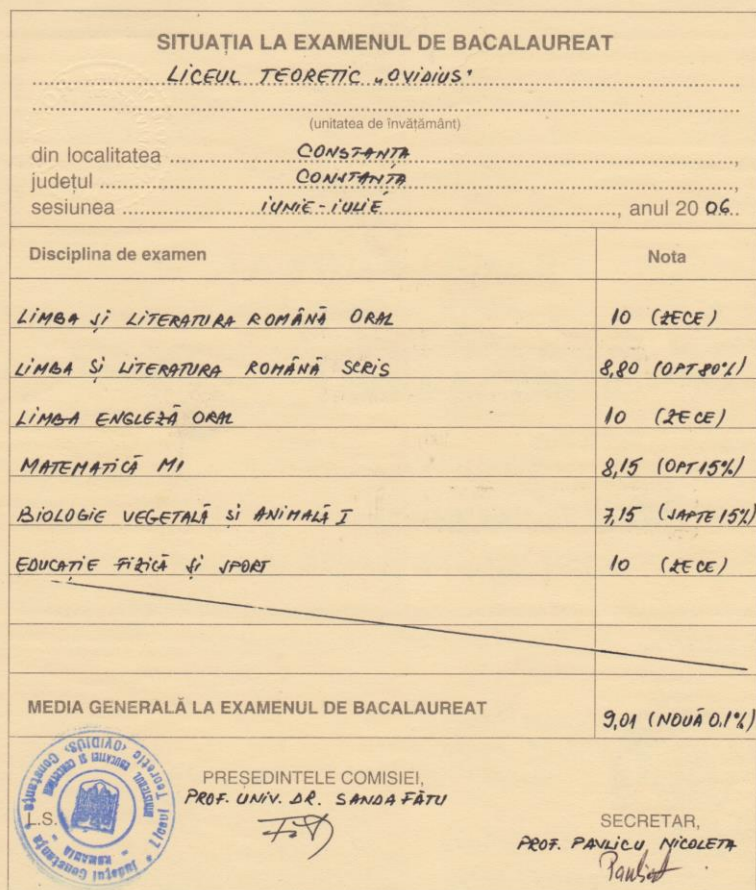 SITUAȚIA LA EXAMENUL DE BACALAUREAT
LICEUL TEORETIC „OVIDIUS"
(unitatea de învățământ)
din localitatea CONSTANȚA,
județul CONSTANȚA,
sesiunea IUNIE-IULIE, anul 2006
Disciplina de examen Nota
LIMBA ȘI LITERATURA ROMÂNĂ ORAL 10 (ZECE)
LIMBA ȘI LITERATURA ROMÂNĂ SCRIS 8,80 (OPT 80%)
LIMBA ENGLEZĂ ORAL 10 (ZECE)
MATEMATICĂ M1 8,15 (OPT 15%)
BIOLOGIE VEGETALĂ SI ANIMALĂ I 7,15 (ȘAPTE 15%)
EDUCAȚIE FIZICĂ ȘI SPORT 10 (ZECE)
MEDIA GENERALĂ LA EXAMENUL DE BACALAUREAT 9,01 (NOUĂ 0,1%)
PREȘEDINTELE COMISIEI,
PROF. UNIV. DR. SANDA FĂTU
L.S.
SECRETAR,
PROF. PAVLICU NICOLETA
ROMANIA
MINISTERUL EDUCATIEI SI CERCETARII
Judetul Constanta * Liceul Teoretic „OVIDIUS" Constanta